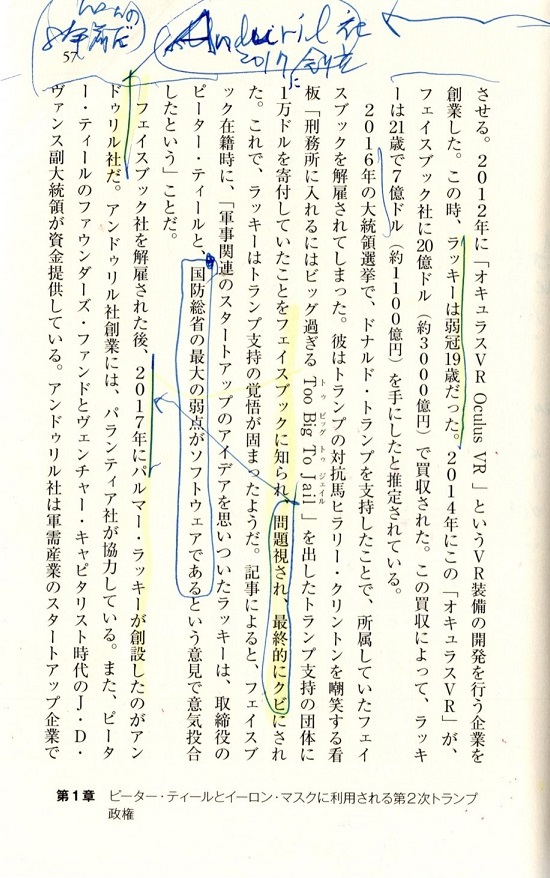 57
Anduril社
2017に創立
させる。2012年に「オキュラスVR Oculus VR」というVR装備の開発を行う企業を
創業した。この時、ラッキーは弱冠19歳だった。2014年にこの「オキュラスVR」が、
フェイスブック社に20億ドル（約3000億円）で買収された。この買収によって、ラッキ
ーは21歳で7億ドル（約1100億円）を手にしたと推定されている。
2016年の大統領選挙で、ドナルド・トランプを支持したことで、所属していたフェイ
スブックを解雇されてしまった。彼はトランプの対抗馬ヒラリー・クリントンを嘲笑する看
板「刑務所に入れるにはビッグ過ぎる Too Big To Jail」を出したトランプ支持の団体に
トゥ ビッグ トゥ ジェイル
1万ドルを寄付していたことをフェイスブックに知られ、問題視され、最終的にクビにされ
た。これで、ラッキーはトランプ支持の覚悟が固まったようだ。記事によると、フェイスブ
ック在籍時に、「軍事関連のスタートアップのアイデアを思いついたラッキーは、取締役の
ピーター・ティールと、国防総省の最大の弱点がソフトウェアであるという意見で意気投合
したという」ことだ。
フェイスブック社を解雇された後、2017年にパルマー・ラッキーが創設したのがアン
ドゥリル社だ。アンドゥリル社創業には、パランティア社が協力している。また、ピータ
ー・ティールのファウンダーズ・ファンドとヴェンチャー・キャピタリスト時代のJ・D・
ヴァンス副大統領が資金提供している。アンドゥリル社は軍需産業のスタートアップ企業で
第1章 ピーター・ティールとイーロン・マスクに利用される第2次トランプ
政権